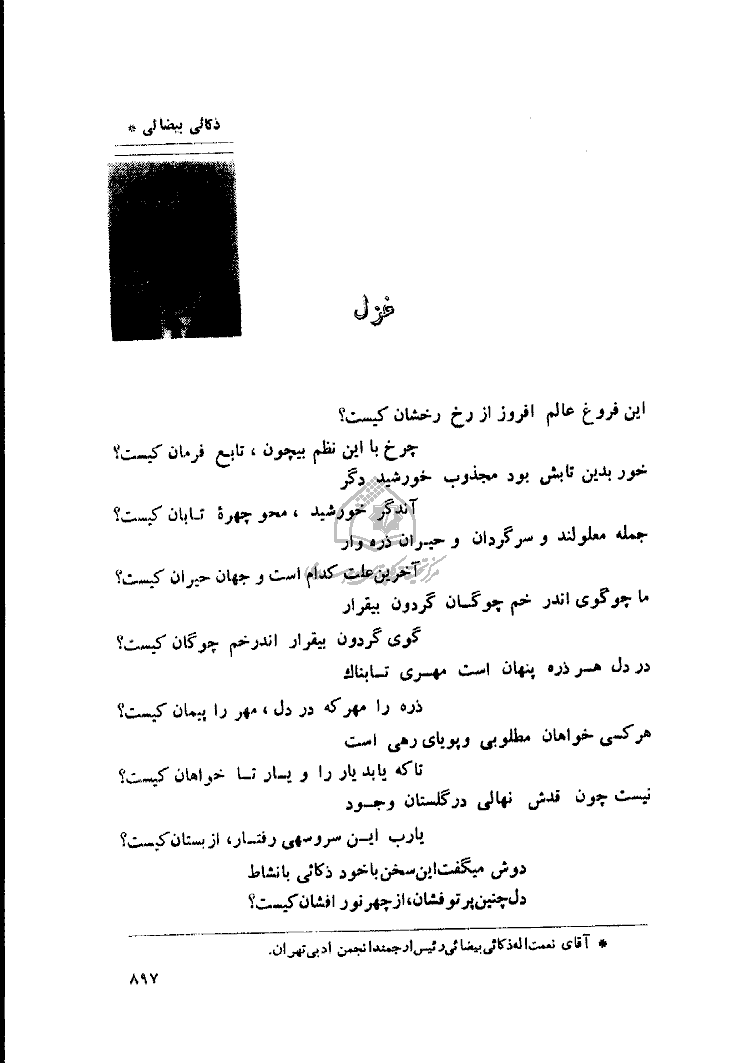 ذکائی بیضائی *
غزل
این فروغ عالم افروز از رخ رخشان کیست؟
چرخ با این نظم بیچون ، تابع فرمان کیست؟
خور بدین تابش بود مجذوب خورشید دگر
آندگر خورشید ، محو چهرهٔ تابان کیست؟
جمله معلولند و سرگردان و حیران ذره وار
آخرین علت کدام است و جهان حیران کیست؟
ما چوگوی اندر خم چوگان گردون بیقرار
گوی گردون بیقرار اندرخم چوگان کیست؟
در دل هر ذره پنهان است مهری تابناك
ذره را مهرکه در دل ، مهر را پیمان کیست؟
هرکسی خواهان مطلوبی وپویای رهی است
تاکه یابد یار را و یار تا خواهان کیست؟
نیست چون قدش نهالی درگلستان وجود
یارب این سروسهی رفتار، از بستان کیست؟
دوش میگفت این سخن با خود ذکائی با نشاط
دل چنین پرتوفشان، از چهر نور افشان کیست؟
* آقای نعمت اله ذکائی بیضائی رئیس ارجمند انجمن ادبی تهران.
۸۹۷